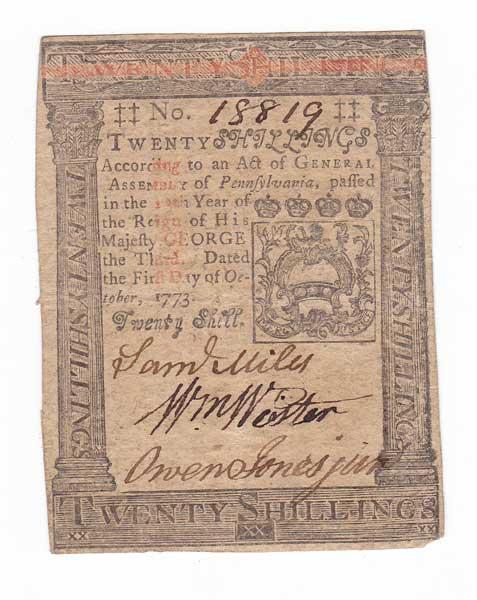 TWENTY SHILLINGS
‡‡ No. 18819 ‡‡
TWENTY SHILLINGS
According to an Act of GENERAL
ASSEMBLY of Pennsylvania, passed
in the Year of
the Reign of His
Majesty GEORGE
the Third. Dated
the First Day of Oc-
tober, 1773.
Twenty Shill.
TWENTY SHILLINGS
TWENTY SHILLINGS
Saml Miles
Wm Wister
Owen Jones jun
TWENTY SHILLINGS
XX XX XX